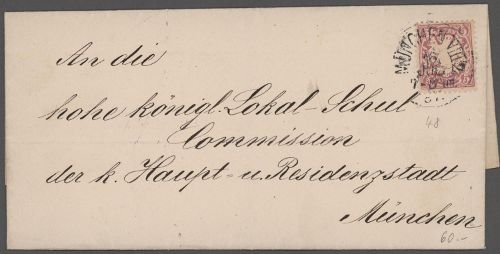 An die
hohe königl. Lokal-Schul
Commission
der k. Haupt- u. Residenzstadt
München
MÜNCHEN VIII.
48
60.-